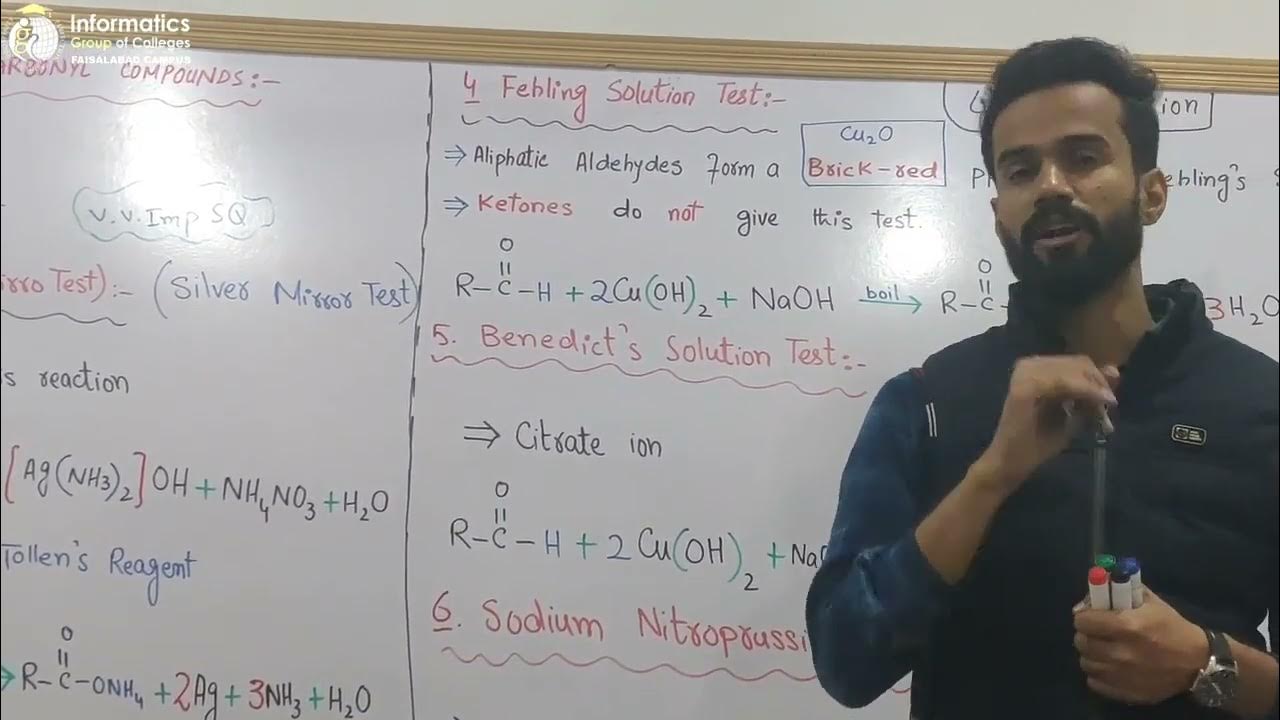 Informatics
Group of Colleges
FAISALABAD CAMPUS
ARBONYL COMPOUNDS:-
V.V.Imp SQ
irro Test):- (Silver Mirror Test)
s reaction
[Ag(NH3)2]OH + NH4NO3 + H2O
Tollen's Reagent
O
R-C-ONH4 + 2Ag + 3NH3 + H2O
4 Febling Solution Test:-
⇒ Aliphatic Aldehydes form a
Cu2O
Brick-red
⇒ Ketones do not give this test.
O
R-C-H + 2Cu(OH)2 + NaOH boil → R-C-
O
3H2O
5. Benedict's Solution Test:-
⇒ Citrate ion
O
R-C-H + 2Cu(OH)2 + Na
6. Sodium Nitroprussi
ion
ebling's